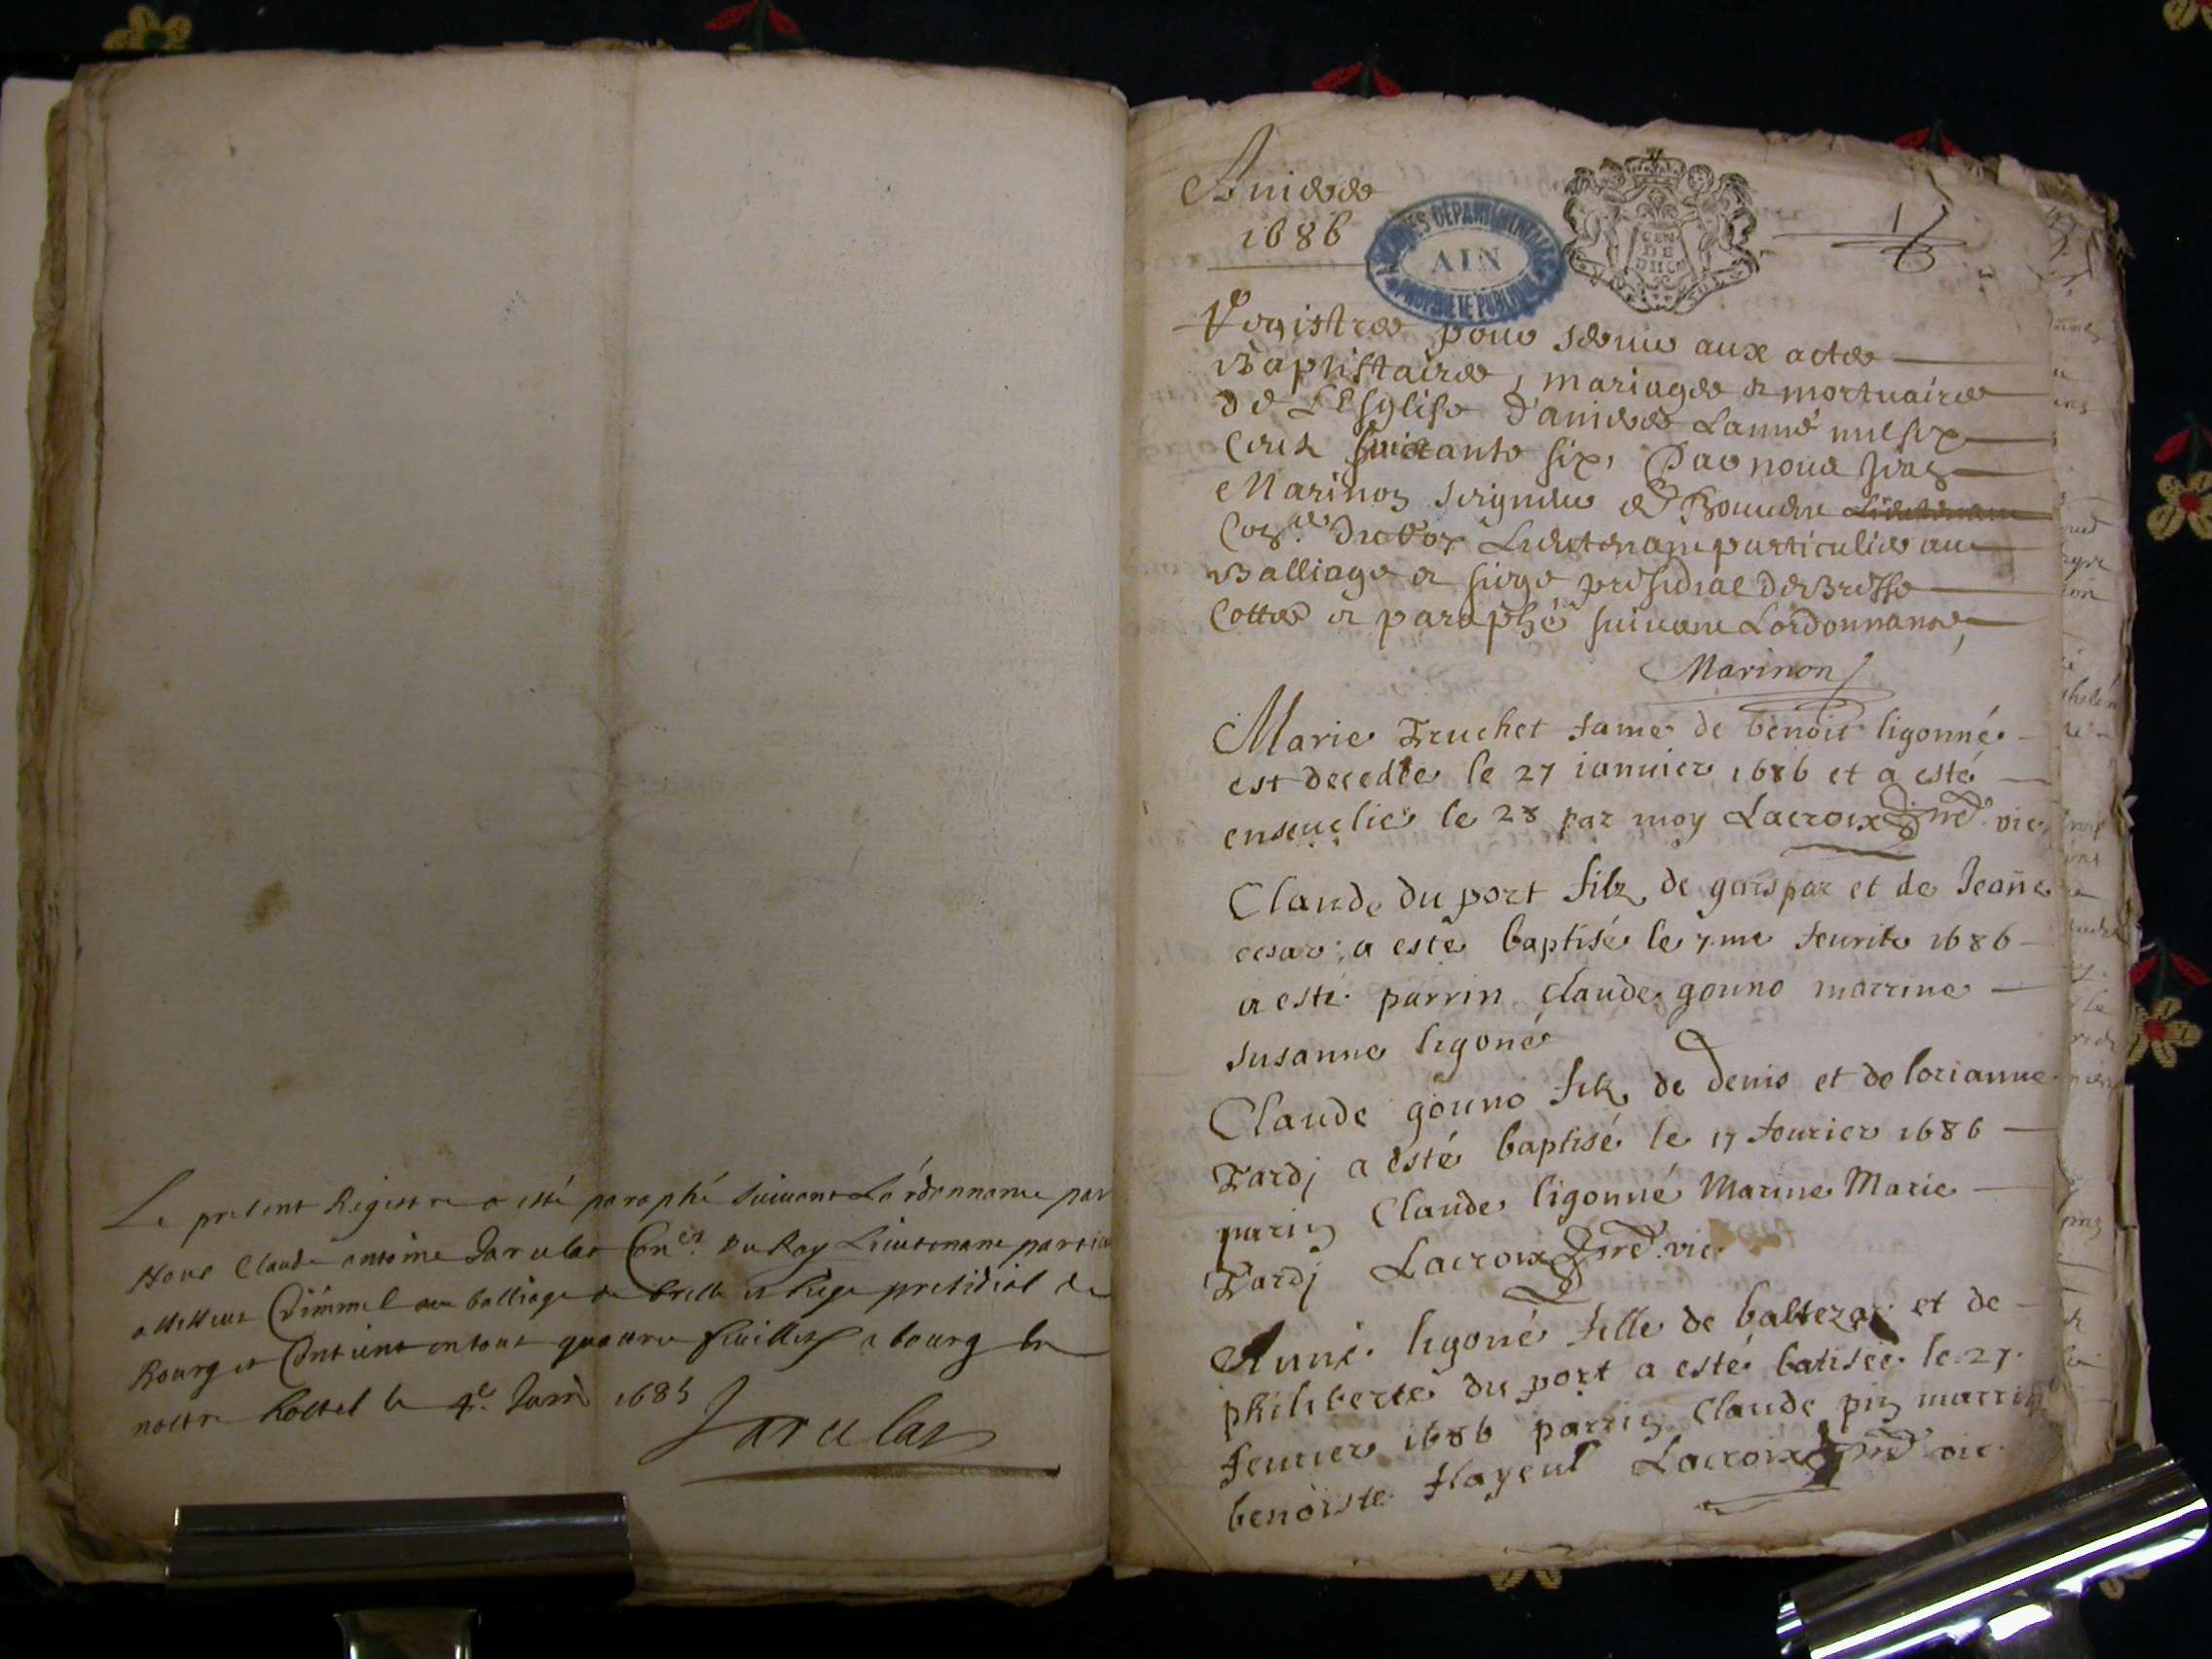 Le present Registre a esté paraphé suivant Lordonnance par
Nous Claude antoine Jarcelat Con.er Du Roy Lieutenant particu
assesseur Criminel au balliage de bresse et siege presidial de
Bourg et Contient en tout quattre feuilles a bourg en
nostre hostel le 4.e Janv 1685
Jarcelat
1686
ARCHIVES DÉPARTEMENTALES
AIN
PROPRIÉTÉ PUBLIQUE
GEN
DE
1
Registre pour servir aux actes
Baptistaires, mariages & mortuaires
de L'Esglise
Cents six, Par nous
Marinon seigneur de
Con.er du Roy Lieutenant particulier au
Balliage et siege presidial de Bresse
Cotté et paraphé suivant Lordonnance,
Marinon
Marie Fruchet fame de benoit ligonné
est decedée le 27 ianuier 1686 et a esté
enseuelie le 28 par moy Lacroix vic.
Claude du port filz de gaspar et de Jeañe
cesar a esté baptisé le 7.me feurier 1686
a esté parrin claude gouno marrine
susanne ligoné
Claude gouno filz de denis et de lorianne
Tardj a esté baptisé le 17 feurier 1686
parin Claude ligonné Marine Marie
Tardj Lacroix vic.
Anne ligoné fille de baltezar et de
philiberte du port a esté batisée le 27.
feurier 1686 parrin Claude pin marrin
benoiste flayeul Lacroix vic.